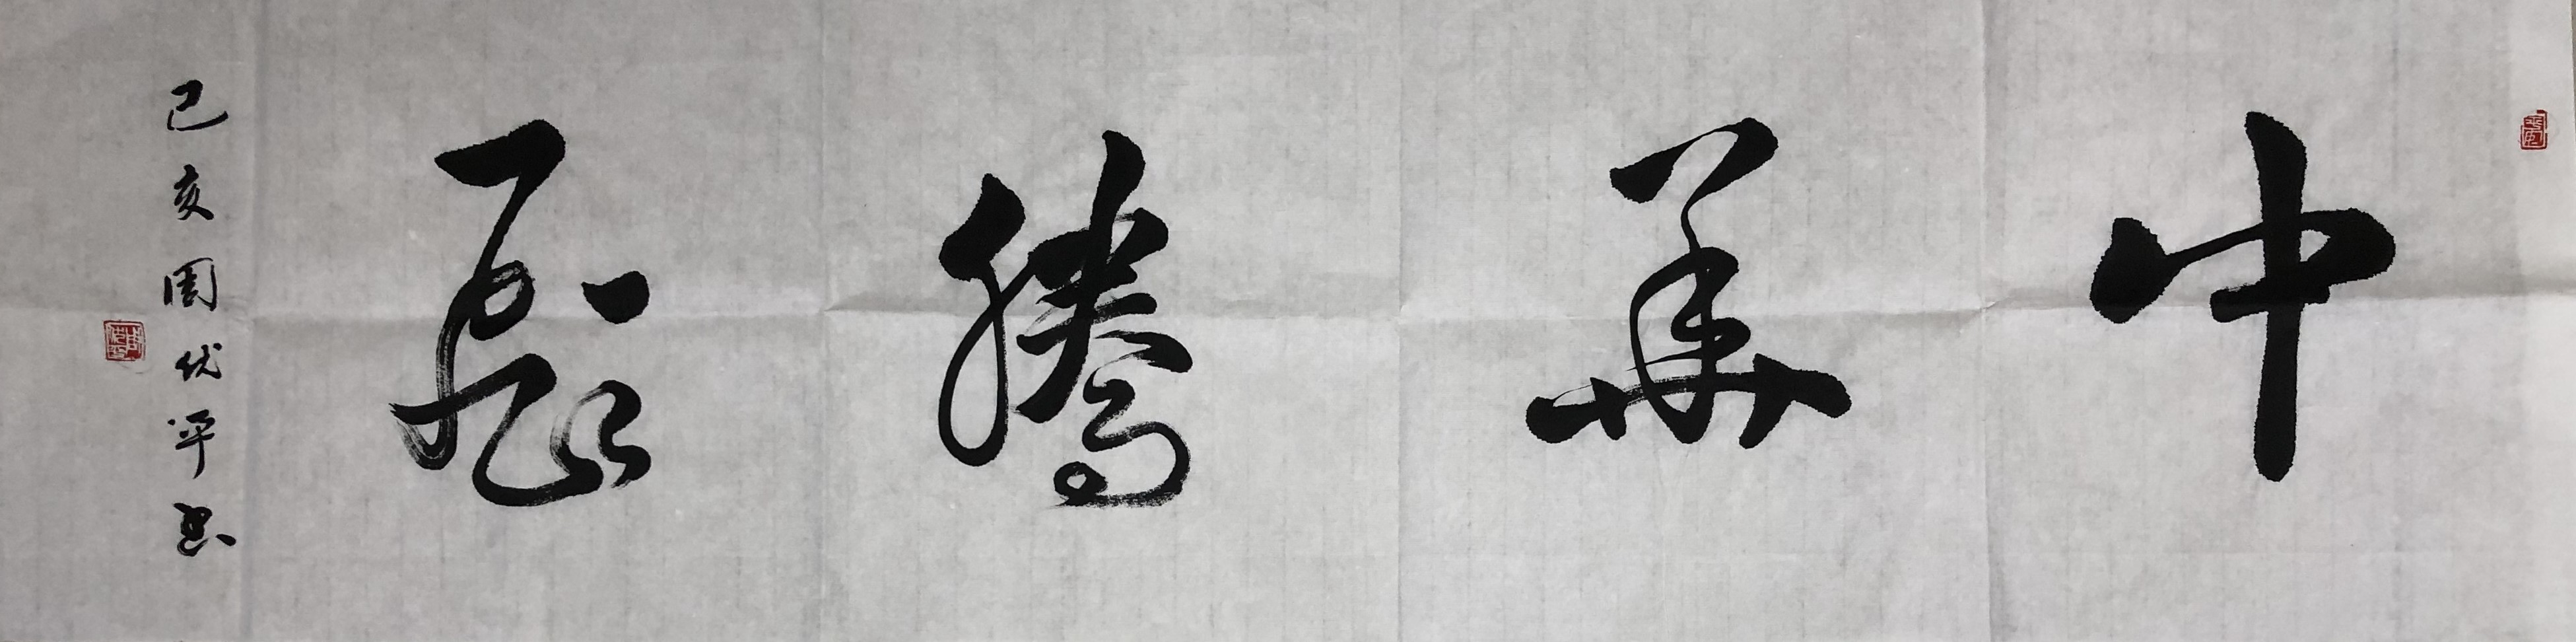 中華騰飛
己亥周伏平书